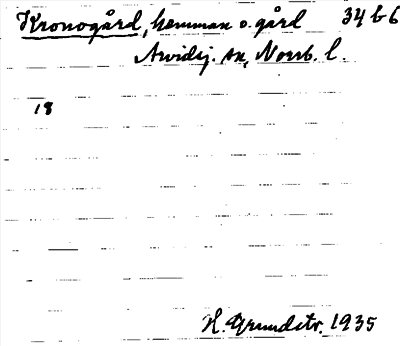 Kronogård, hemman o. gård 34 b 6
Arvidsj. sn, Norrb. l.
18
H. Grundstr. 1935